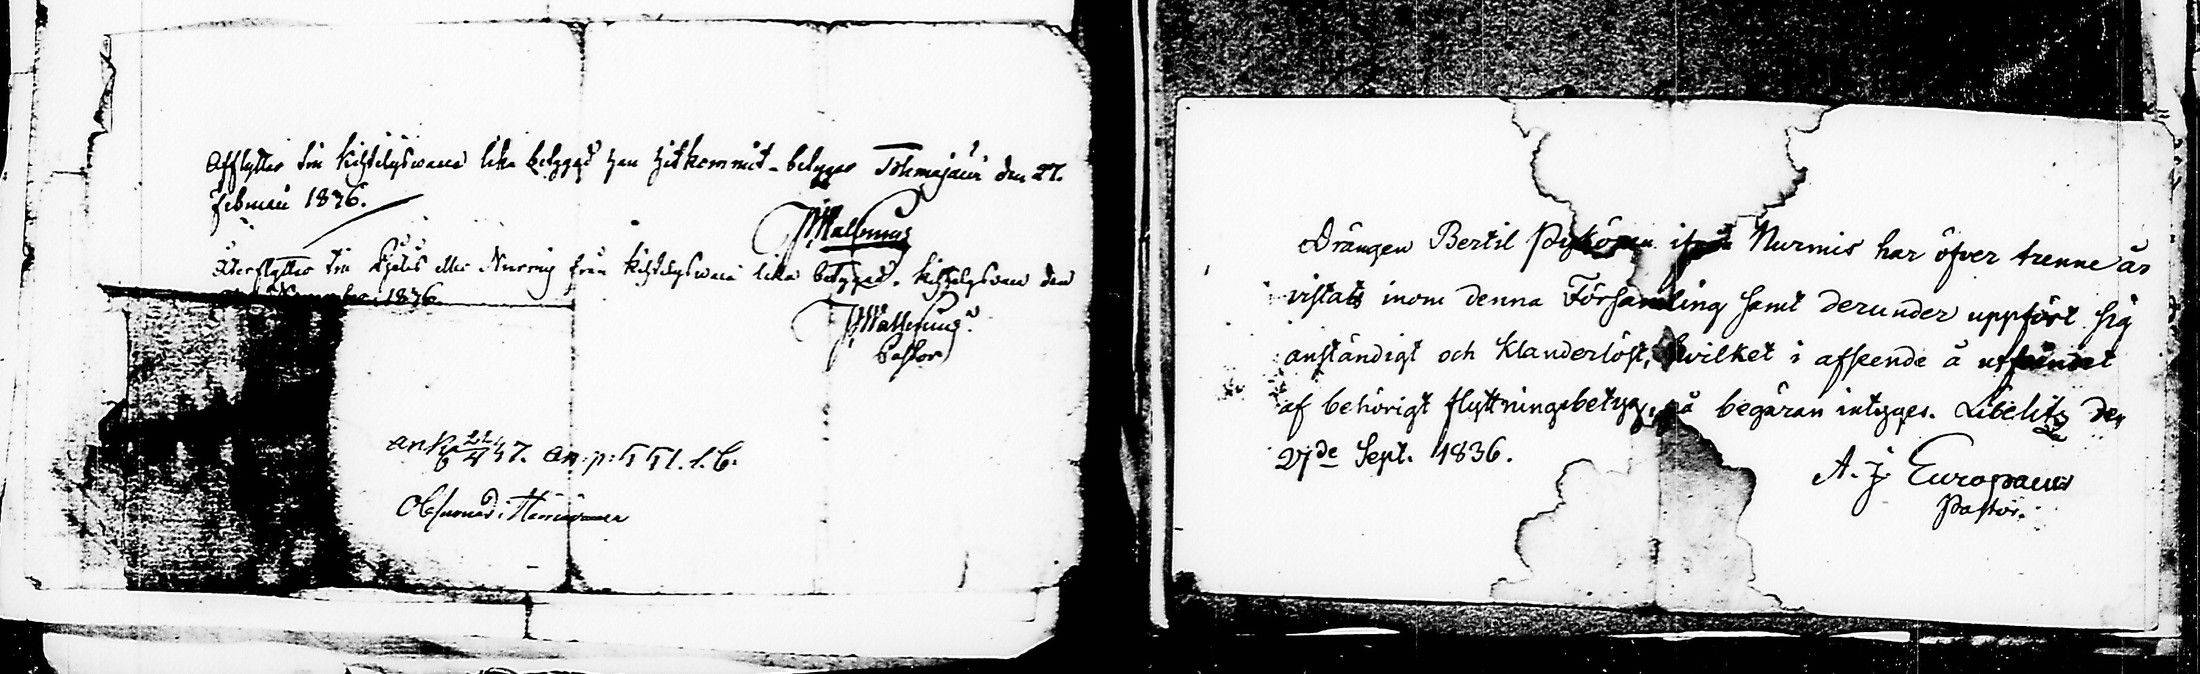 Afflyttar till Kihtelysvaara lika betygad han hitkommit - betygar Tohmajärvi den 27.
Februari 1836.
Wallenius
Återflyttar till eller Nurmis från Kihtelysvaara lika betygad. Kihtelysvaara den
November 1836.
Wallenius
Pastor
Drängen Bertil Pyykönen ifrån Nurmis har öfver trenne år
vistats inom denna Församling samt derunder uppfört sig
anständigt och klanderlöst, hvilket i afseende å utfåendet
af behörigt flyttningsbetyg, på begäran intygas. Libelits den
27de Sept. 1836.
A. J. Europaeus
Pastor.